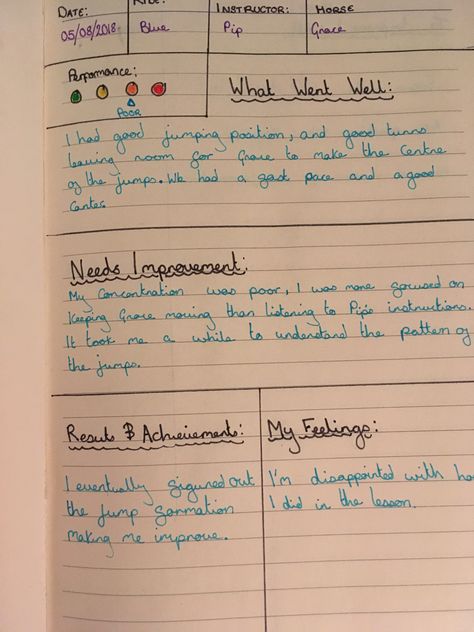 DATE: RIDE: INSTRUCTOR: HORSE
05/08/2018 Blue Pip Grace
Performance:
POOR
What Went Well:
I had good jumping position, and good turns
leaving room for Grace to make the centre
of the jumps. We had a good pace and a good
canter.
Needs Improvement:
My concentration was poor, I was more focused on
keeping Grace moving than listening to Pip's instructions.
It took me a while to understand the pattern of
the jumps.
Results & Achievements:
I eventually figured out
the jump formation
making me improve.
My Feelings:
I'm disappointed with ho
I did in the lesson.